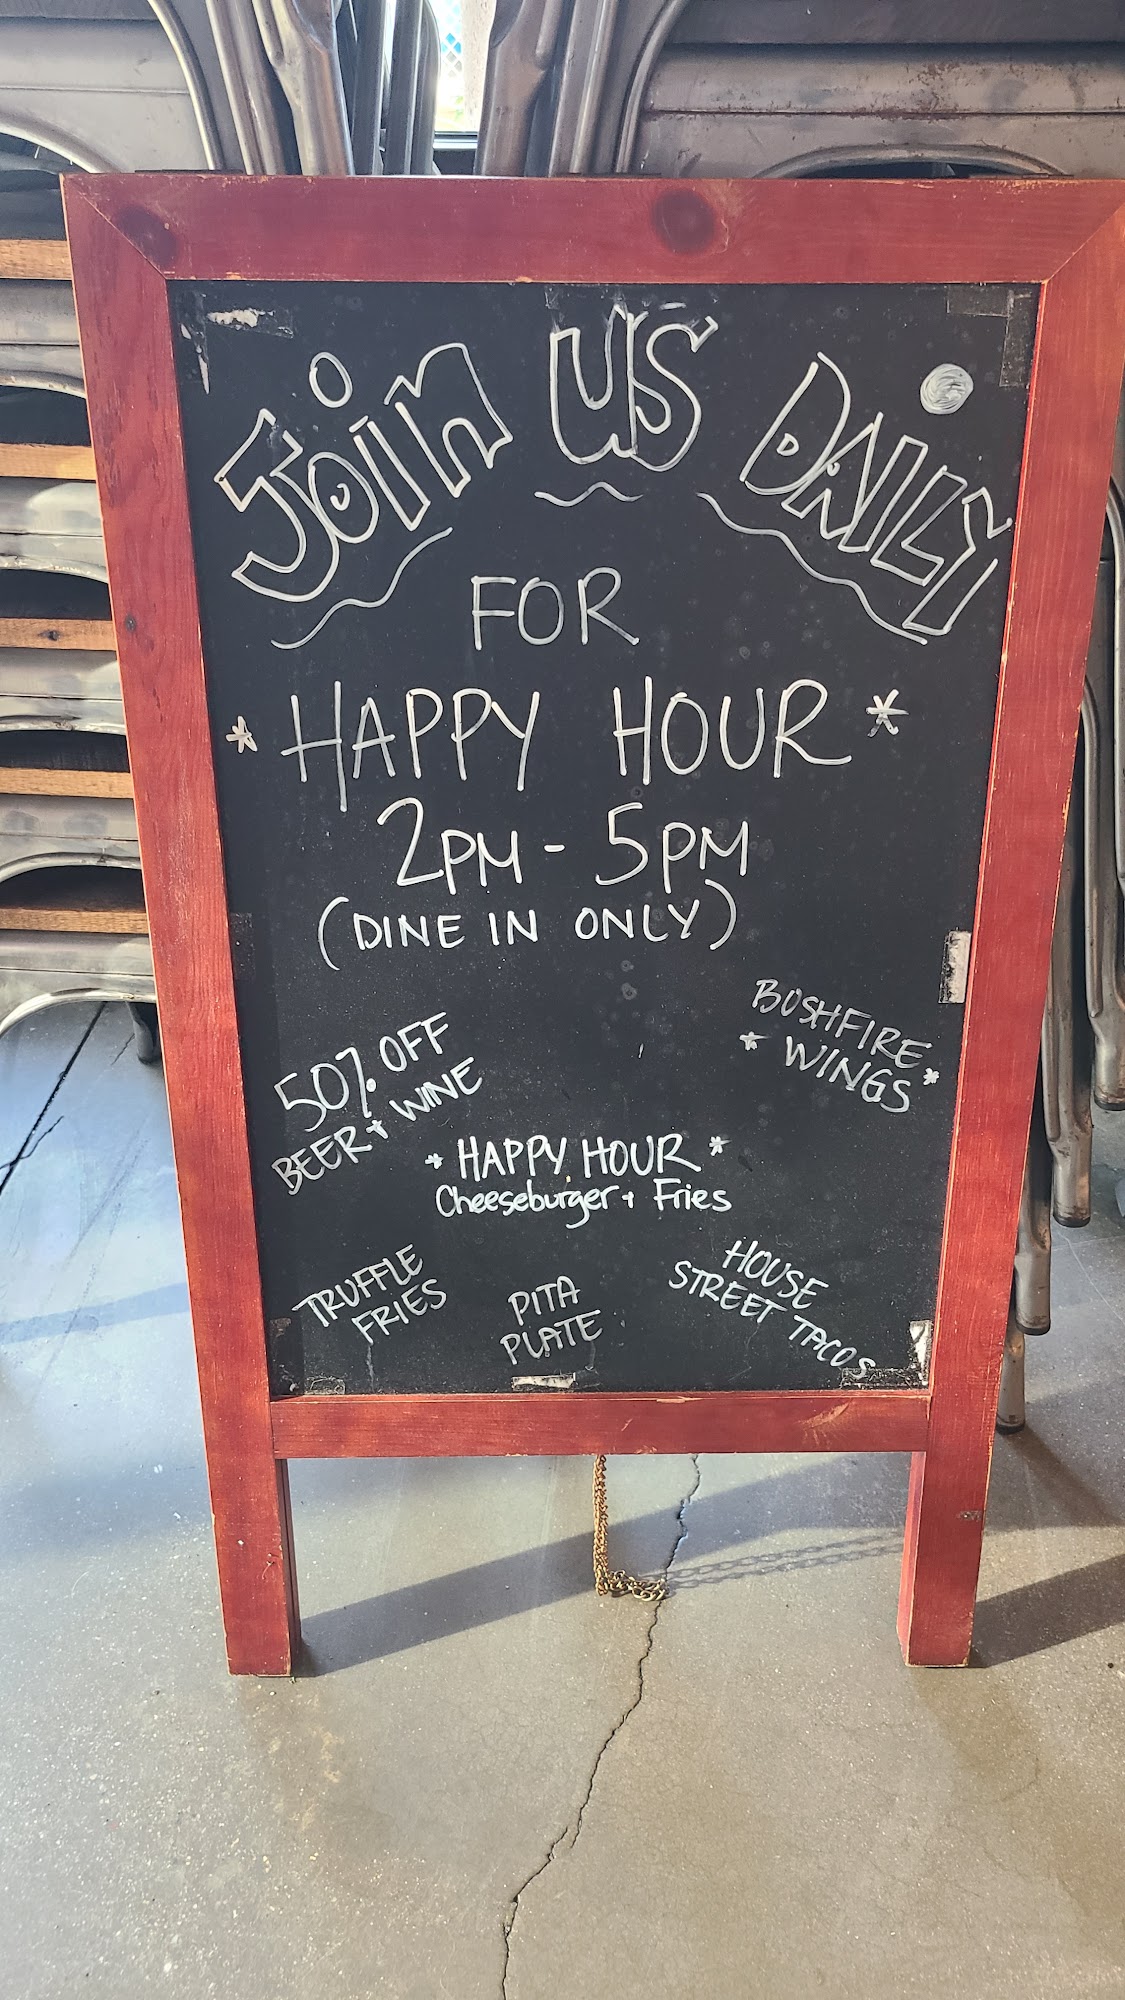 Join US DAILY
FOR
* HAPPY HOUR *
2PM - 5PM
(DINE IN ONLY)
50% OFF
BEER + WINE
BUSHFIRE
* WINGS *
* HAPPY HOUR *
Cheeseburger + Fries
TRUFFLE
FRIES
PITA
PLATE
HOUSE
STREET TACOS